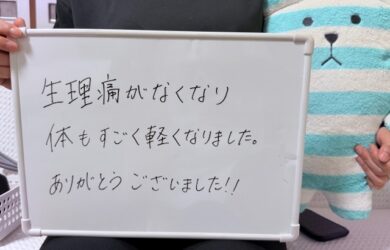 生理痛がなくなり
体もすごく軽くなりました。
ありがとうございました!!